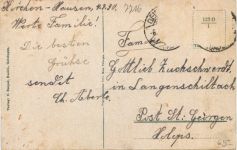 Kirchen-Hausen, 8.2.30.
Werte Familie!
Die besten
Grüße
sendet
Th. Aberle.
Familie
Gottlieb Zuckschwerdt,
in Langenschiltach
Post St. Georgen